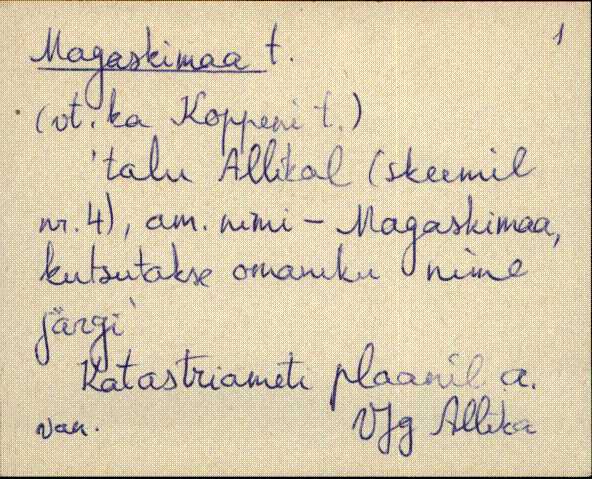 1
Magaskimaa t.
(vt. ka Koppeni t.)
'talu Allikal (skeemil
nr. 4), am. nimi - Magaskimaa,
kutsutakse omaniku nime
järgi'
Katastriameti plaanil a.
van. VJg Allika